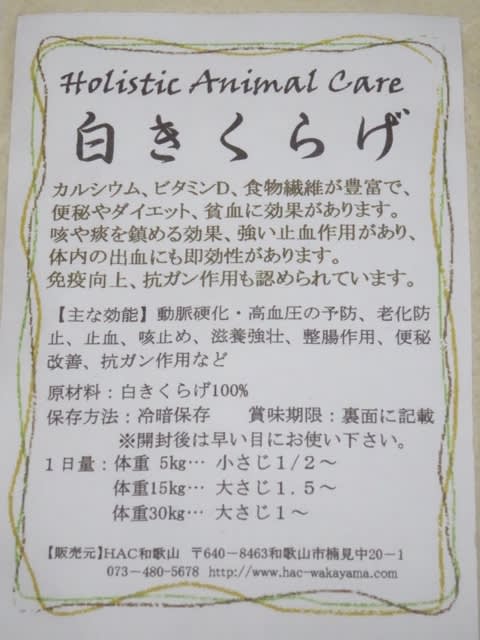 Holistic Animal Care
白きくらげ
カルシウム、ビタミンD、食物繊維が豊富で、
便秘やダイエット、貧血に効果があります。
咳や痰を鎮める効果、強い止血作用があり、
体内の出血にも即効性があります。
免疫向上、抗ガン作用も認められています。
【主な効能】動脈硬化・高血圧の予防、老化防
止、止血、咳止め、滋養強壮、整腸作用、便秘
改善、抗ガン作用など
原材料：白きくらげ100%
保存方法：冷暗保存　賞味期限：裏面に記載
※開封後は早い目にお使い下さい。
1日量：体重 5kg… 小さじ1/2～
体重15kg… 大さじ1.5～
体重30kg… 大さじ1～
【販売元】HAC和歌山　〒640－8463和歌山市楠見中20－1
073－480－5678 http://www.hac-wakayama.com